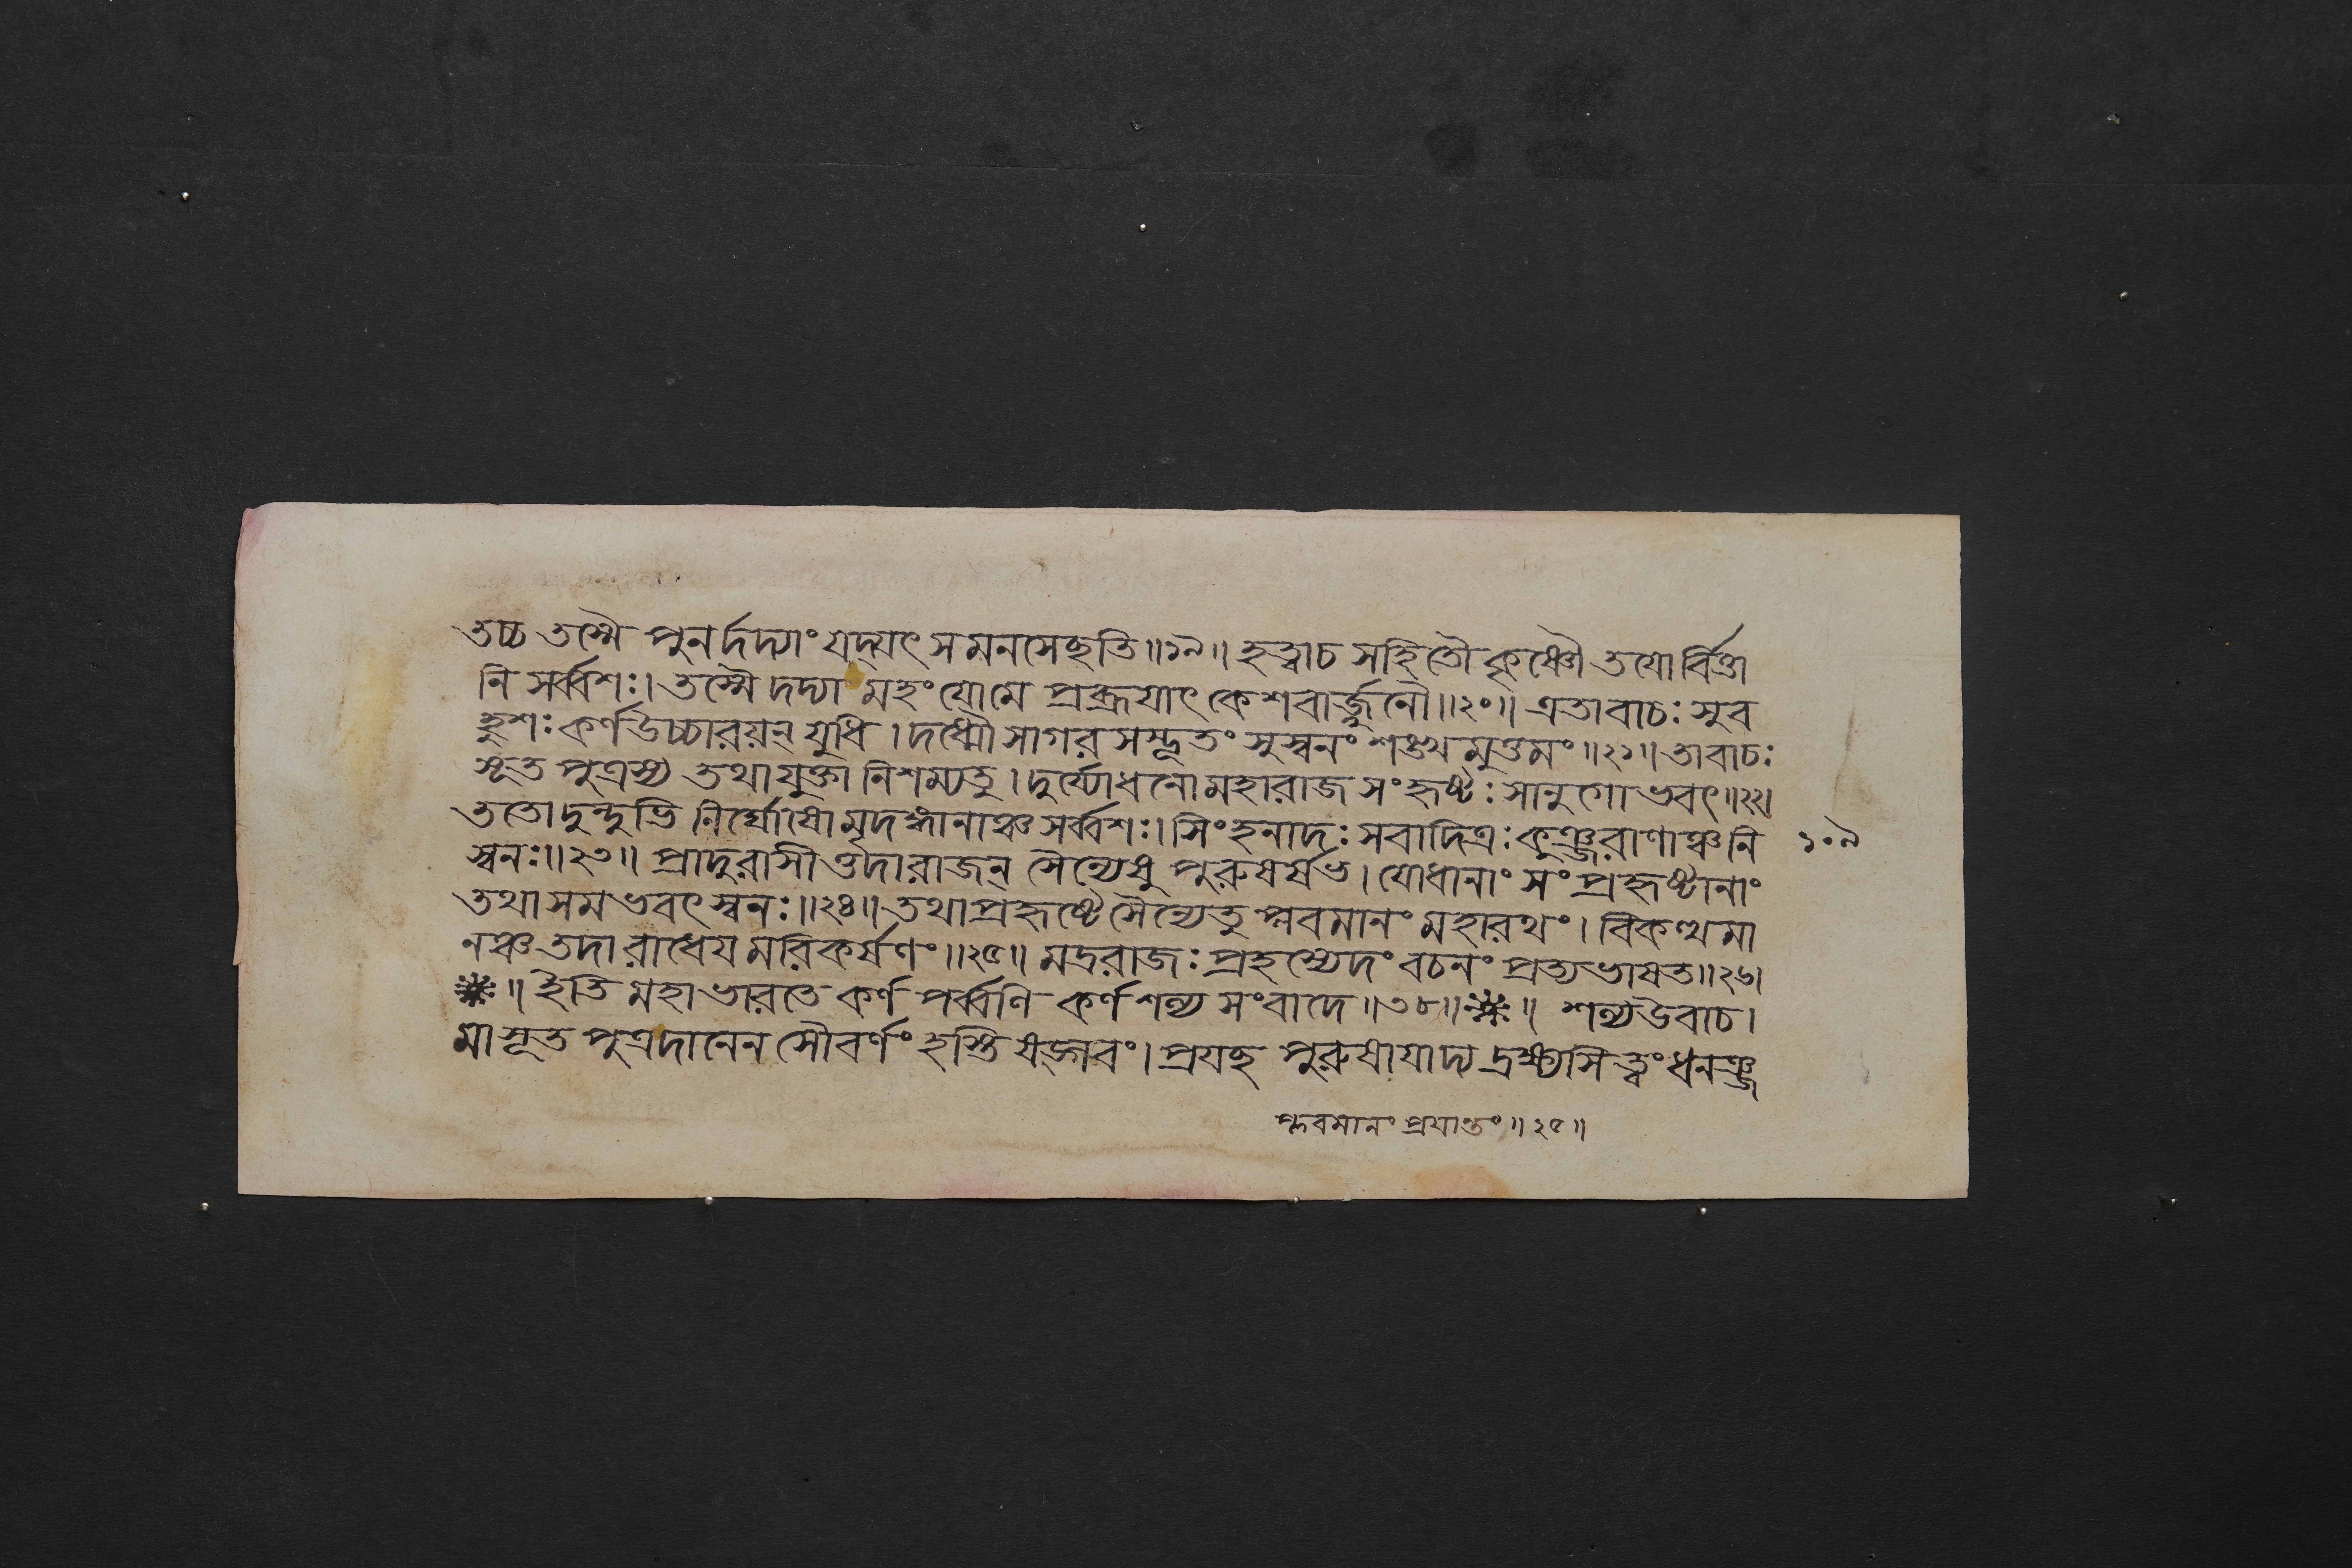 তচ্চ তস্মৈ পুনর্দদ্যাং যদ্যৎ সমনসেছতি॥১৯॥ হত্বাচ সহিতৌ কৃষ্ণৌ তযোর্বিত্তা
নি সর্ব্বশঃ। তস্মৈ দদ্যা মহং যোমে প্রব্রূযাৎ কেশবার্জ্জুনৌ॥২০॥ এতাবাচঃ সুব
হুশঃ কর্ণউচ্চারয়ন্ যুধি। দধ্মৌ সাগর সম্ভূতং সুস্বনং শঙ্খ মুত্তমং॥২১॥ তাবাচঃ
সূত পুত্রস্য তথাযুক্তা নিশম্যতু। দুর্য্যোধনো মহারাজ সংহৃষ্টঃ সানুগো ভবৎ॥২২।
ততোদুন্দুভি নির্ঘোষোমৃদঙ্গানাঞ্চ সর্ব্বশঃ। সিংহনাদঃ সবাদিত্রঃ কুঞ্জরাণাঞ্চনি
স্বনঃ॥২৩॥ প্রাদুরাসীত্তদারাজন্ সৈন্যেষু পুরুষর্ষভ। যোধানাং সংপ্রহৃষ্টানাং
তথা সমভবৎ স্বনঃ॥২৪॥ তথাপ্রহৃষ্টে সৈন্যেতু প্লবমানং মহারথং। বিকত্থমা
নঞ্চ তদা রাধেয মরিকর্ষণং॥২৫॥ মদ্ররাজঃ প্রহস্যেদং বচনং প্রত্যভাষত॥২৬।
॥ ইতি মহাভারতে কর্ণ পর্ব্বণি কর্ণ শল্য সংবাদে॥৩৮॥ ॥ শল্যউবাচ।
মা সূত পুত্রদানেন সৌবর্ণং হস্তি ষড্গবং। প্রযছ পুরুষাযাদ্য দ্রক্ষ্যসি ত্বং ধনঞ্জ
১০৯
প্লবমানং প্রযান্তং॥২৫॥